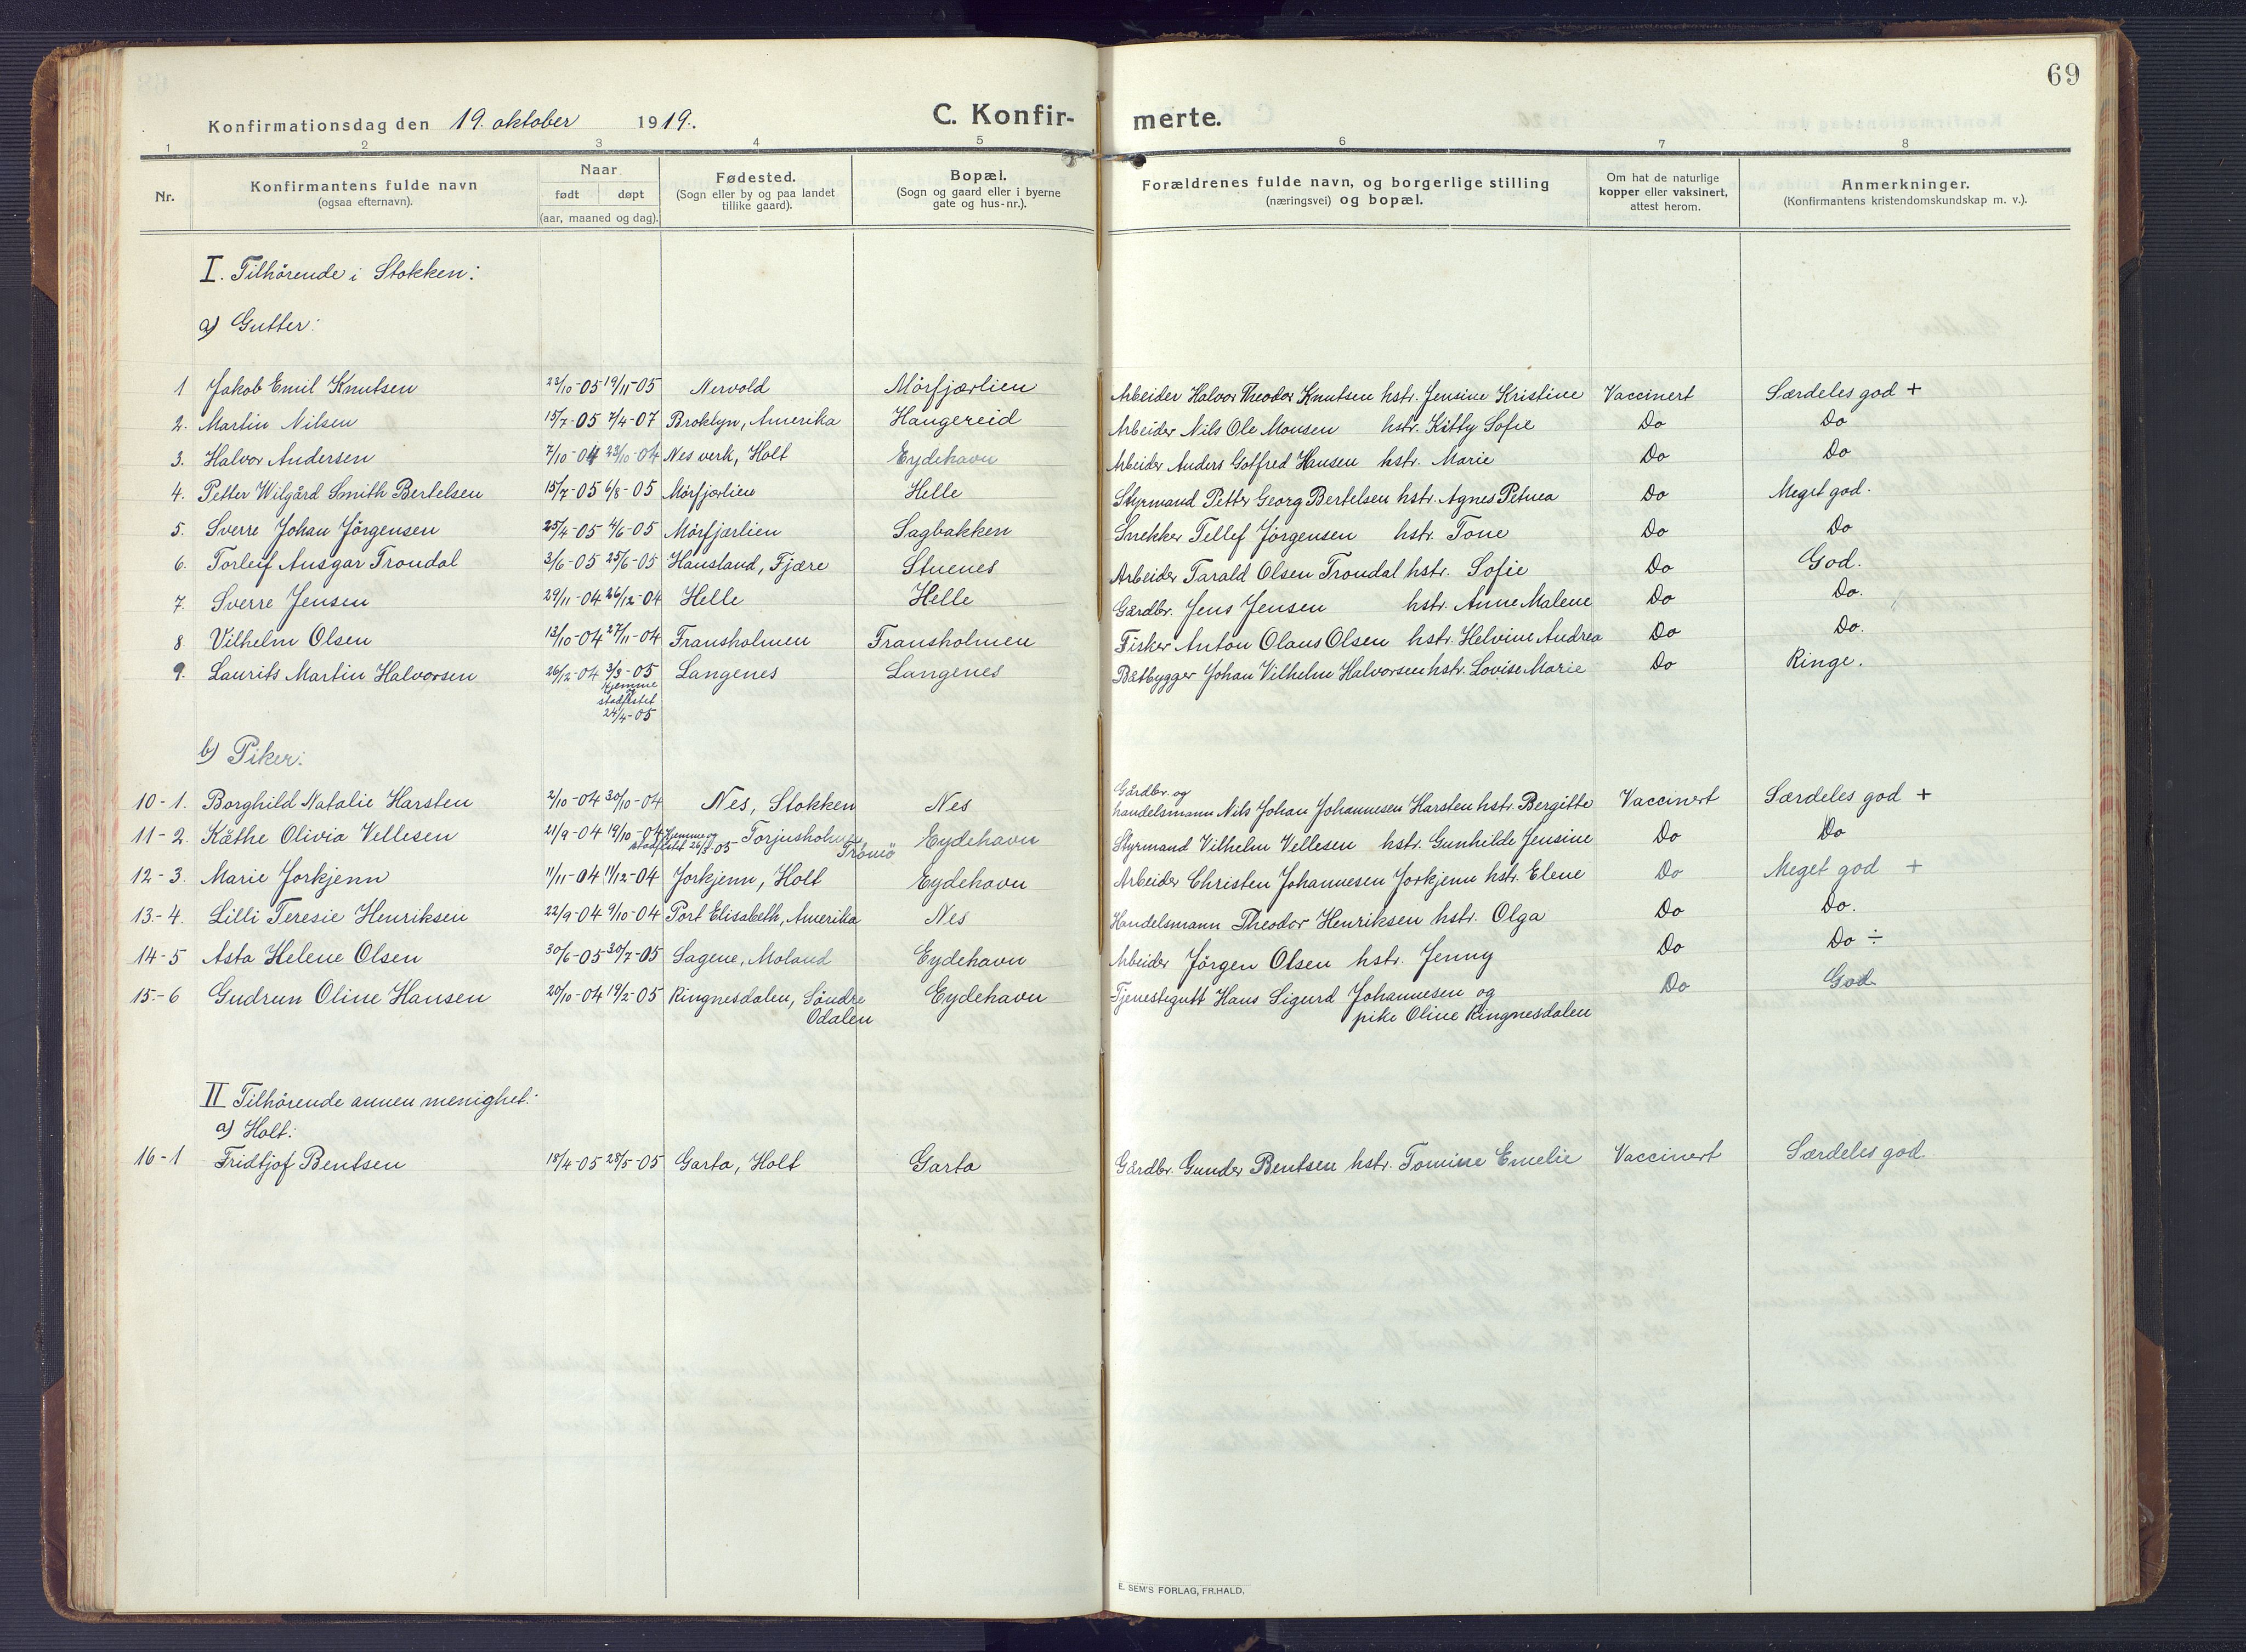 69
Konfirmationsdag den 19. oktober 1919.
C. Konfir-merte.
1 2 3 4 5 6 7 8
Nr.
Konfirmantens fulde navn
(ogsaa efternavn).
Naar
født døpt
(aar, maaned og dag).
Fødested.
(Sogn eller by og paa landet
tillike gaard).
Bopæl.
(Sogn og gaard eller i byerne
gate og hus-nr.).
Forældrenes fulde navn, og borgerlige stilling
(næringsvei) og bopæl.
Om hat de naturlige
kopper eller vaksinert,
attest herom.
Anmerkninger.
(Konfirmantens kristendomskundskap m. v.).
I. Tilhörende i Stokken:
a) Gutter:
1 Jakob Emil Knutsen 22/10-05 19/11-05 Nervold Mörfjærlien Arbeider Halvor Theodor Knutsen hstr. Jensine Kristine Vaccinert Særdeles god +
2. Martin Nilsen 15/7-05 7/4-07 Broklyn, Amerika Haugereid Arbeider Nils Ole Monsen hstr. Kitty Sofie Do Do
3. Halvor Andersen 7/10-04 23/10-04 Nes verk, Holt Eydehavn Arbeider Anders Gotfred Hansen hstr. Marie Do Do
4. Petter Wilgård Smith Bertelsen 15/7-05 6/8-05 Mörfjærlien Helle Styrmand Petter Georg Bertelsen hstr. Agnes Petnea Do Meget god.
5. Sverre Johan Jörgensen 25/4-05 4/6-05 Mörfjærlien Sagbakken Snekker Tellef Jörgensen hstr. Tone Do Do
6. Torleif Ansgar Trondal 3/6-05 25/6-05 Hausland, Fjære Stuenes Arbeider Tarald Olsen Trondal hstr. Sofie Do God.
7. Sverre Jensen 29/11-04 26/12-04 Helle Helle Gårdbr. Jens Jensen hstr. Anne Malene Do Do.
8 Vilhelm Olsen 13/10-04 27/11-04 Fransholmen Fransholmen Fisker Anton Olaus Olsen hstr. Helvine Andrea Do Do.
9. Laurits Martin Halvorsen 26/12-04 3/3-05 Langenes Langenes Båtbygger Johan Vilhelm Halvorsen hstr. Lovise Marie Do Ringe.
hjemme
og
stadfestet
24/4-05
b) Piker:
Gårdbr. og
10-1. Borghild Natalie Harsten 2/10-04 30/10-04 Nes, Stokken Nes handelsmann Nils Johan Johannesen Harsten hstr. Bergitte Vaccinert Særdeles god +
11-2. Käthe Olivia Vellesen 21/9-04 19/10-04 hjemme og Torjusholmen Eydehavn Styrmand Vilhelm Vellesen hstr. Gunhilde Jensine Do Do
stadfestet 26/3-05 Tromö
12-3. Marie Jorkjenn 11/11-04 11/12-04 Jorkjenn, Holt Eydehavn Arbeider Christen Johannesen Jorkjenn hstr. Elene Do Meget god +
13-4. Lilli Teresie Henriksen 22/9-04 9/10-04 Port Elisabeth, Amerika Nes Handelsmann Theodor Henriksen hstr. Olga Do Do.
14-5 Asta Helene Olsen 30/6-05 30/7-05 Sagene, Moland Eydehavn Arbeider Jörgen Olsen hstr. Jenny Do Do ÷
15-6 Gudrun Oline Hansen 20/10-04 19/2-05 Ringnesdalen, Söndre Eydehavn Tjenestegutt Hans Sigurd Johannesen og Do God
Odalen pike Oline Ringnesdalen
II Tilhörende annen menighet:
a) Holt:
16-1 Fridtjof Bentsen 18/4-05 28/5-05 Garta, Holt Garta Gårdbr. Gunder Bentsen hstr. Tomine Emelie Vaccinert Særdeles god.
E. SEM'S FORLAG, FR.HALD.